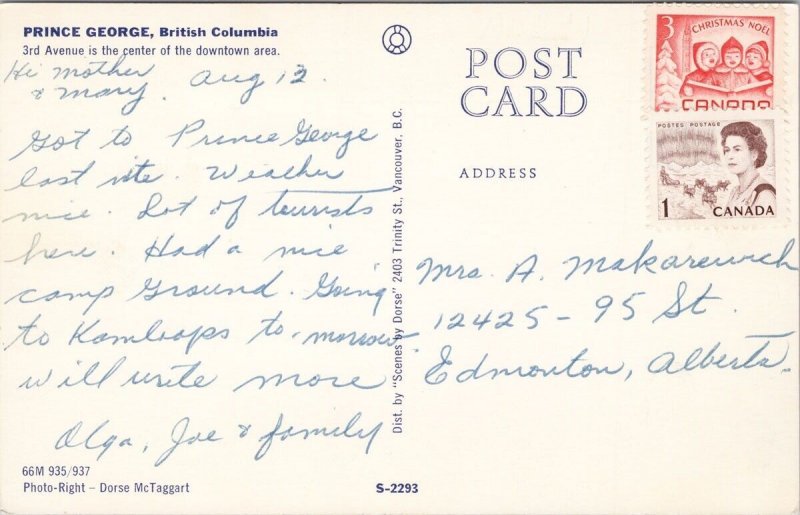 PRINCE GEORGE, British Columbia
3rd Avenue is the center of the downtown area.
Hi Mother
& Mary. Aug 12
Got to Prince George
last nite. Weather
nice. Lot of tourists
here. Had a nice
camp ground. Going
to Kamloops to-morrow
will write more
Olga, Joe & family
66M 935/937
Photo-Right – Dorse McTaggart
S-2293
Dist. by "Scenes by Dorse" 2403 Trinity St., Vancouver, B.C.
POST
CARD
ADDRESS
3 CHRISTMAS NOEL
CANADA
POSTES POSTAGE
1 CANADA
Mrs. A. Makarewich
12425 - 95 St.
Edmonton, Alberta.